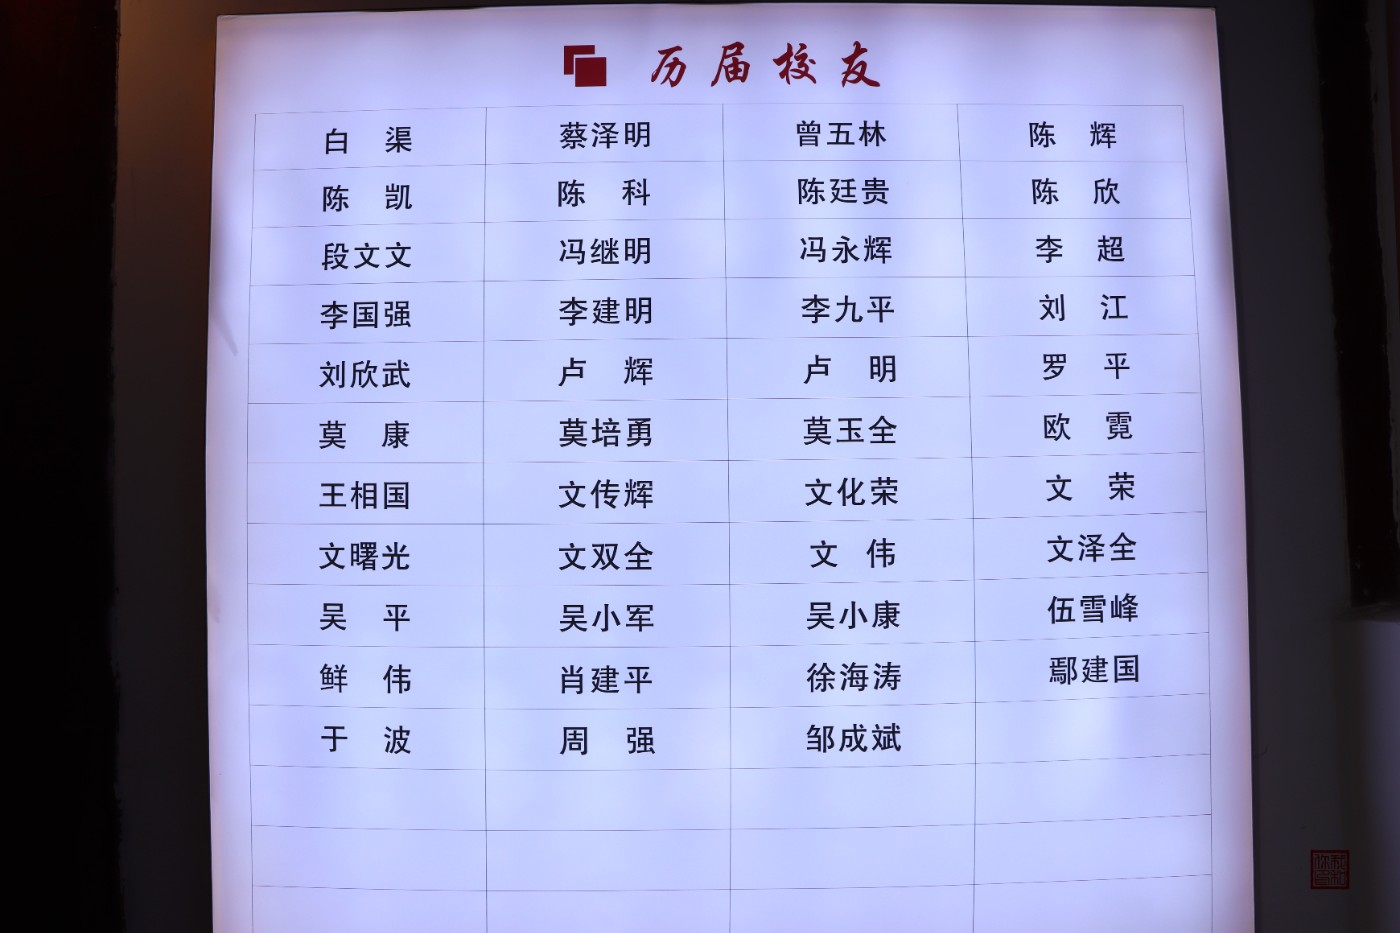 历届校友
白 渠 蔡泽明 曾五林 陈 辉
陈 凯 陈 科 陈廷贵 陈 欣
段文文 冯继明 冯永辉 李 超
李国强 李建明 李九平 刘 江
刘欣武 卢 辉 卢 明 罗 平
莫 康 莫培勇 莫玉全 欧 霓
王相国 文传辉 文化荣 文 荣
文曙光 文双全 文 伟 文泽全
吴 平 吴小军 吴小康 伍雪峰
鲜 伟 肖建平 徐海涛 鄢建国
于 波 周 强 邹成斌